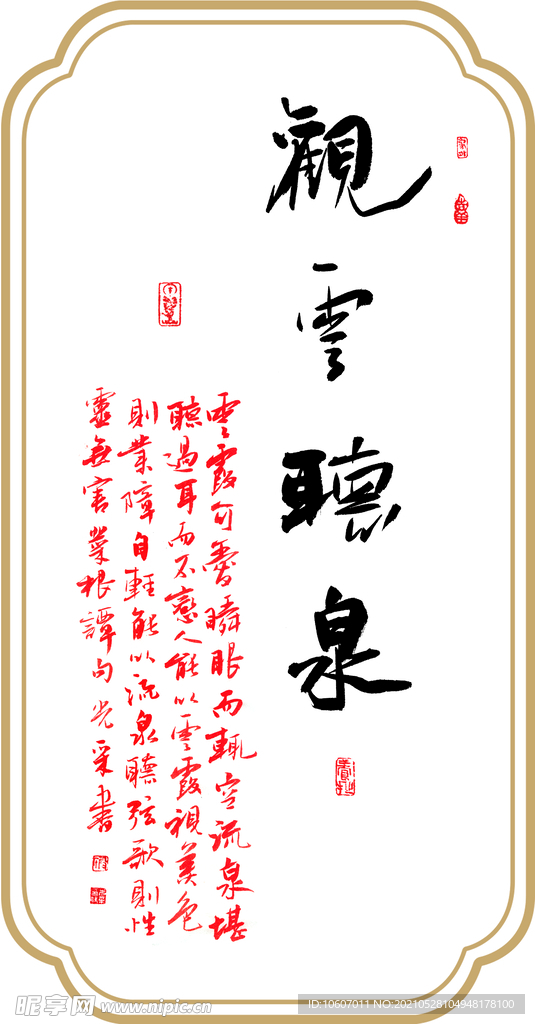 觀雲聽泉
雲霞可愛瞬眼而輒空流泉堪
聽過耳而不戀人能以雲霞視美色
則業障自輕能以流泉聽弦歌則性
靈無害菜根譚句光采書
昵享网 www.nipic.cn
ID:10607011 NO:20210528104948178100